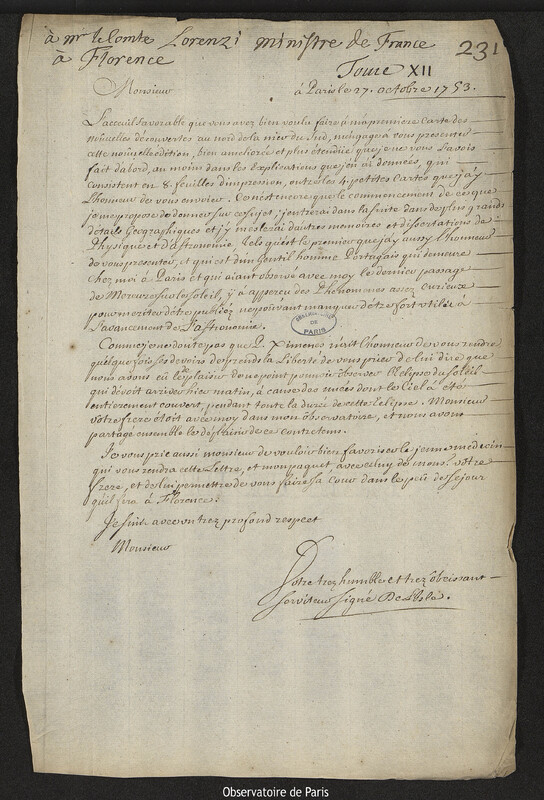 à mr le Comte Lorenzi ministre de France
à Florence
231
Tome XII
Monsieur
à Paris le 27. octobre 1753.
L'acceuil favorable que vous avez bien voulu faire à ma premiere Carte des
nouvelles découvertes au nord de la mer du Sud, m'engage à vous presenter
cette nouvelle édition, bien ameliorée et plus étendue que je ne vous l'avois
fait d'abord, au moins dans les Explications que j'en ai données, qui
consistent en 8. feuilles d'impression, outre les 4. petites Cartes que j'ay
l'honneur de vous envoier. Ce n'est encore que le commencement de ce que
je me propose de donner sur ce sujet; j'entrerai dans la suite dans de plus grands
détails Geographiques et j'y meslerai d'autres memoires et dissertations de
Physique et d'astronomie. Tels qu'est le premier que j'ay aussy l'honneur
de vous presenter, et qui est d'un gentil homme Portugais qui demeure
chez moi à Paris et qui aiant observé avec moy le dernier passage
de Mercure sur le soleil, y à apperçeu des Phénomenes assez curieux
pour meriter d'être publiez ne pouvant manquer d'être fort utiles à
l'avancement de l'astronomie.
OBSERVATOIRE DE PARIS
Comme je ne doute pas que le P. Ximenes n'ait l'honneur de vous rendre
quelque fois ses devoirs je prends la Liberté de vous prier de lui dire que
nous avons eû le déplaisir de ne point pouvoir observer l'Eclipse du soleil
qui devoit arriver hier matin, à cause des nuées dont le Ciel a été
entierement couvert, pendant toute la durée de cette Eclipse. Monsieur
votre frere étoit avec moy dans mon observatoire, et nous avons
partagé ensemble le déplaisir de ce contretems.
Je vous prie aussi monsieur de vouloir bien favoriser le jeune medecin
qui vous rendra cette Lettre, et mon paquet, avec celuy de mons. votre
frere, et de lui permettre de vous faire sa Cour dans le peu de sejour
qu'il fera à Florence.
Je suis avec un trez profond respect
Monsieur
Votre trez humble et trez obeissant
serviteur signé De L'Isle.
Observatoire de Paris